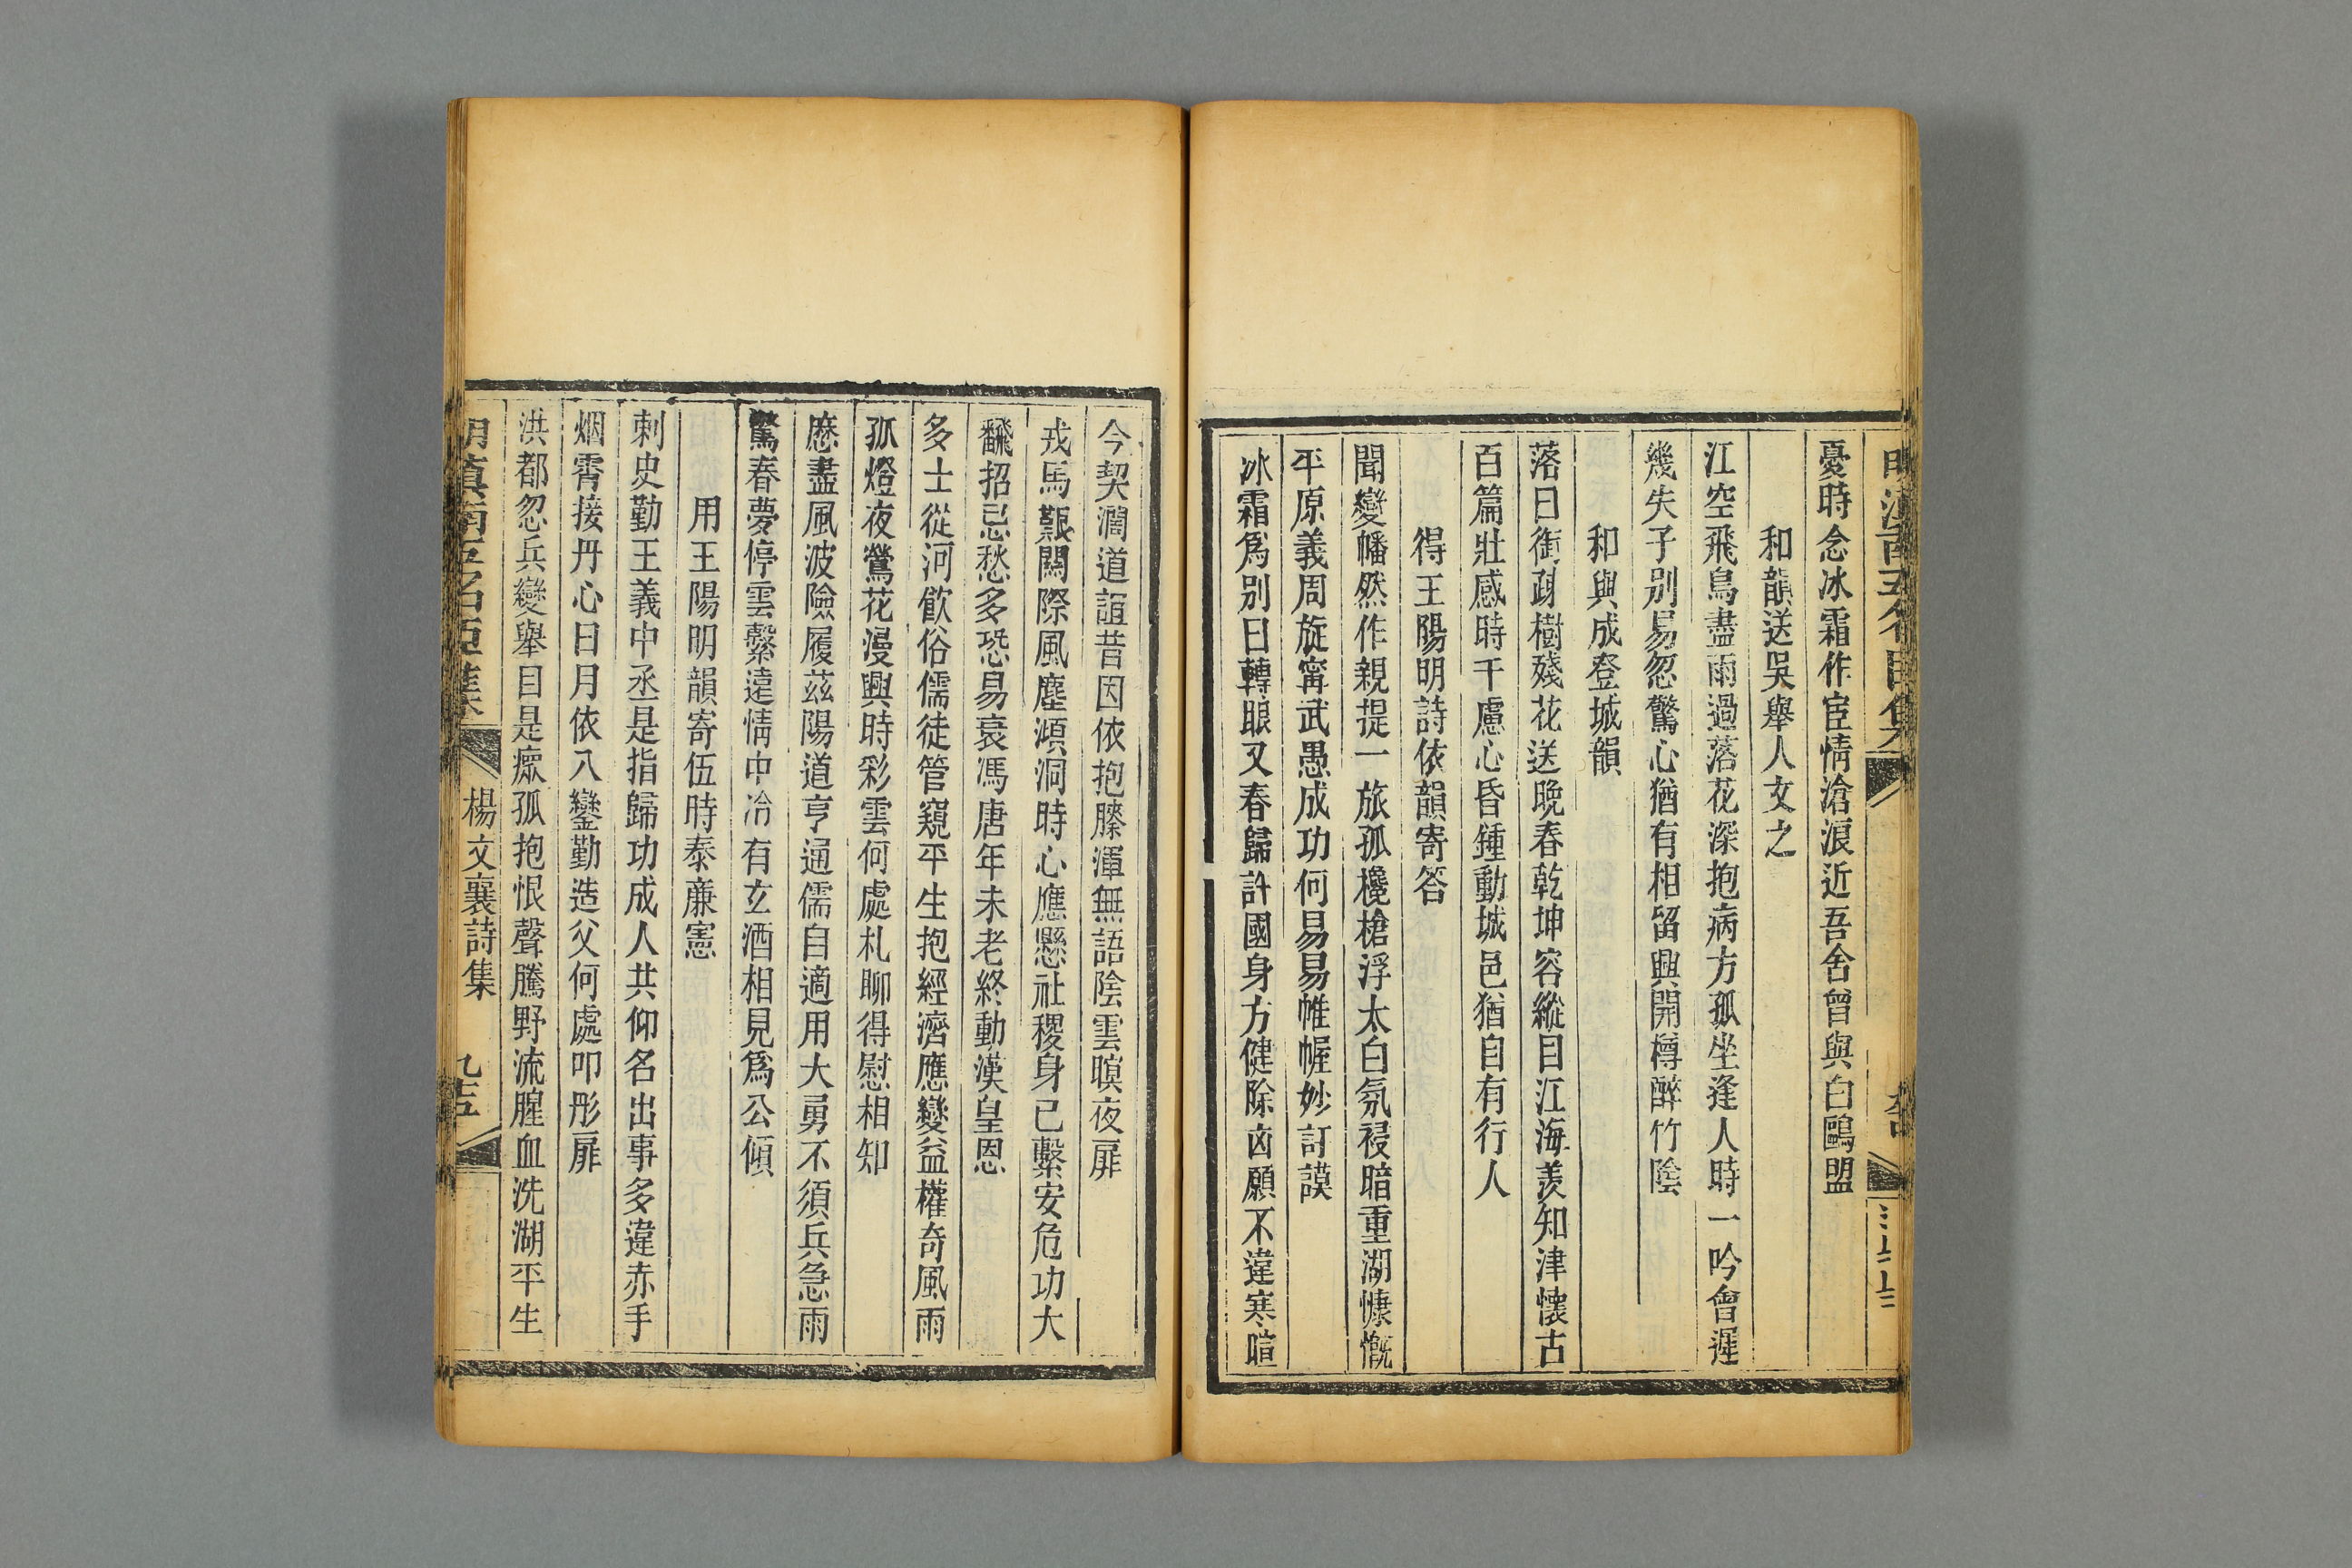 憂時念冰霜作宦情滄浪近吾舍曾與白鷗盟
和韻送吳舉人文之
江空飛鳥盡雨過落花深抱病方孤坐逢人時一吟會遲
幾失子別易忽驚心猶有相留興開樽醉竹陰
和與成登城韻
落日銜疎樹殘花送晚春乾坤容縱目江海羨知津懷古
百篇壯感時千慮心昏鍾動城邑猶自有行人
得王陽明詩依韻寄答
聞變幡然作親提一旅孤欃槍浮太白氛祲暗重湖慷慨
平原義周旋甯武愚成功何易易帷幄妙訏謨
冰霜爲別日轉眼又春歸許國身方健除凶願不違寒暄
今契濶道誼昔因依抱膝渾無語陰雲暝夜扉
戎馬艱關際風塵澒洞時心應懸社稷身已繫安危功大
飜招忌愁多恐易衰馮唐年未老終動漢皇恩
多士從河飮俗儒徒管窺平生抱經濟應變益權奇風雨
孤燈夜鶯花漫興時彩雲何處札聊得慰相知
歷盡風波險履茲陽道亨通儒自適用大勇不須兵急雨
驚春夢停雲繫遠情中冷有玄酒相見爲公傾
用王陽明韻寄伍時泰廉憲
刺史勤王義中丞是指歸功成人共仰名出事多違赤手
烟霄接丹心日月依八鑾勤造父何處叩彤扉
洪都忽兵變舉目是瘝孤抱恨聲騰野流腥血洗湖平生
楊文襄詩集